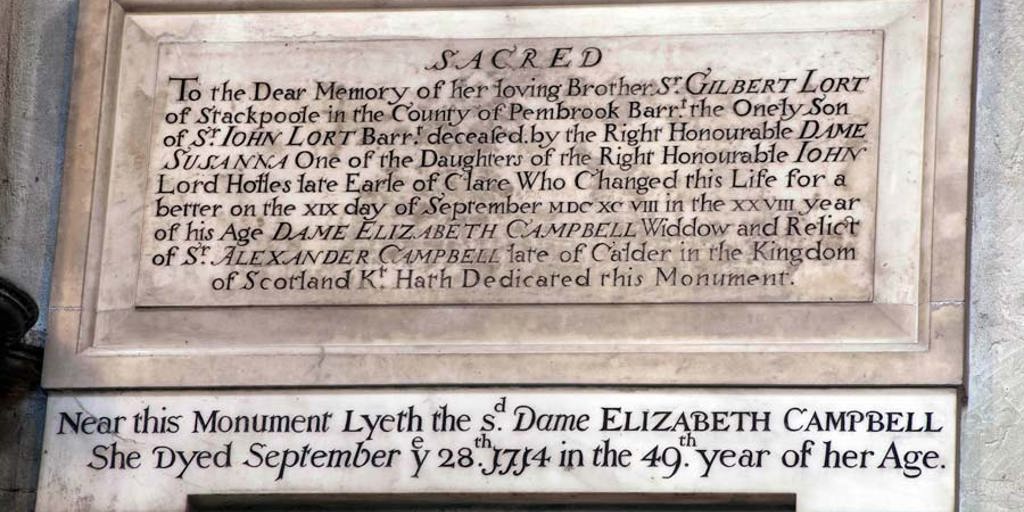 SACRED
To the Dear Memory of her loving Brother Sr. GILBERT LORT
of Stackpoole in the County of Pembrook Barr.t the Onely Son
of Sr. IOHN LORT Barr.t deceased by the Right Honourable DAME
SUSANNA One of the Daughters of the Right Honourable IOHN
Lord Holles late Earle of Clare Who Changed this Life for a
better on the XIX day of September MDC XC VIII in the XXVIII year
of his Age DAME ELIZABETH CAMPBELL Widdow and Relict
of Sr. ALEXANDER CAMPBELL late of Calder in the Kingdom
of Scotland Kt. Hath Dedicated this Monument.
Near this Monument Lyeth the sd. Dame ELIZABETH CAMPBELL
She Dyed September ye 28.th 1714 in the 49.th year of her Age.